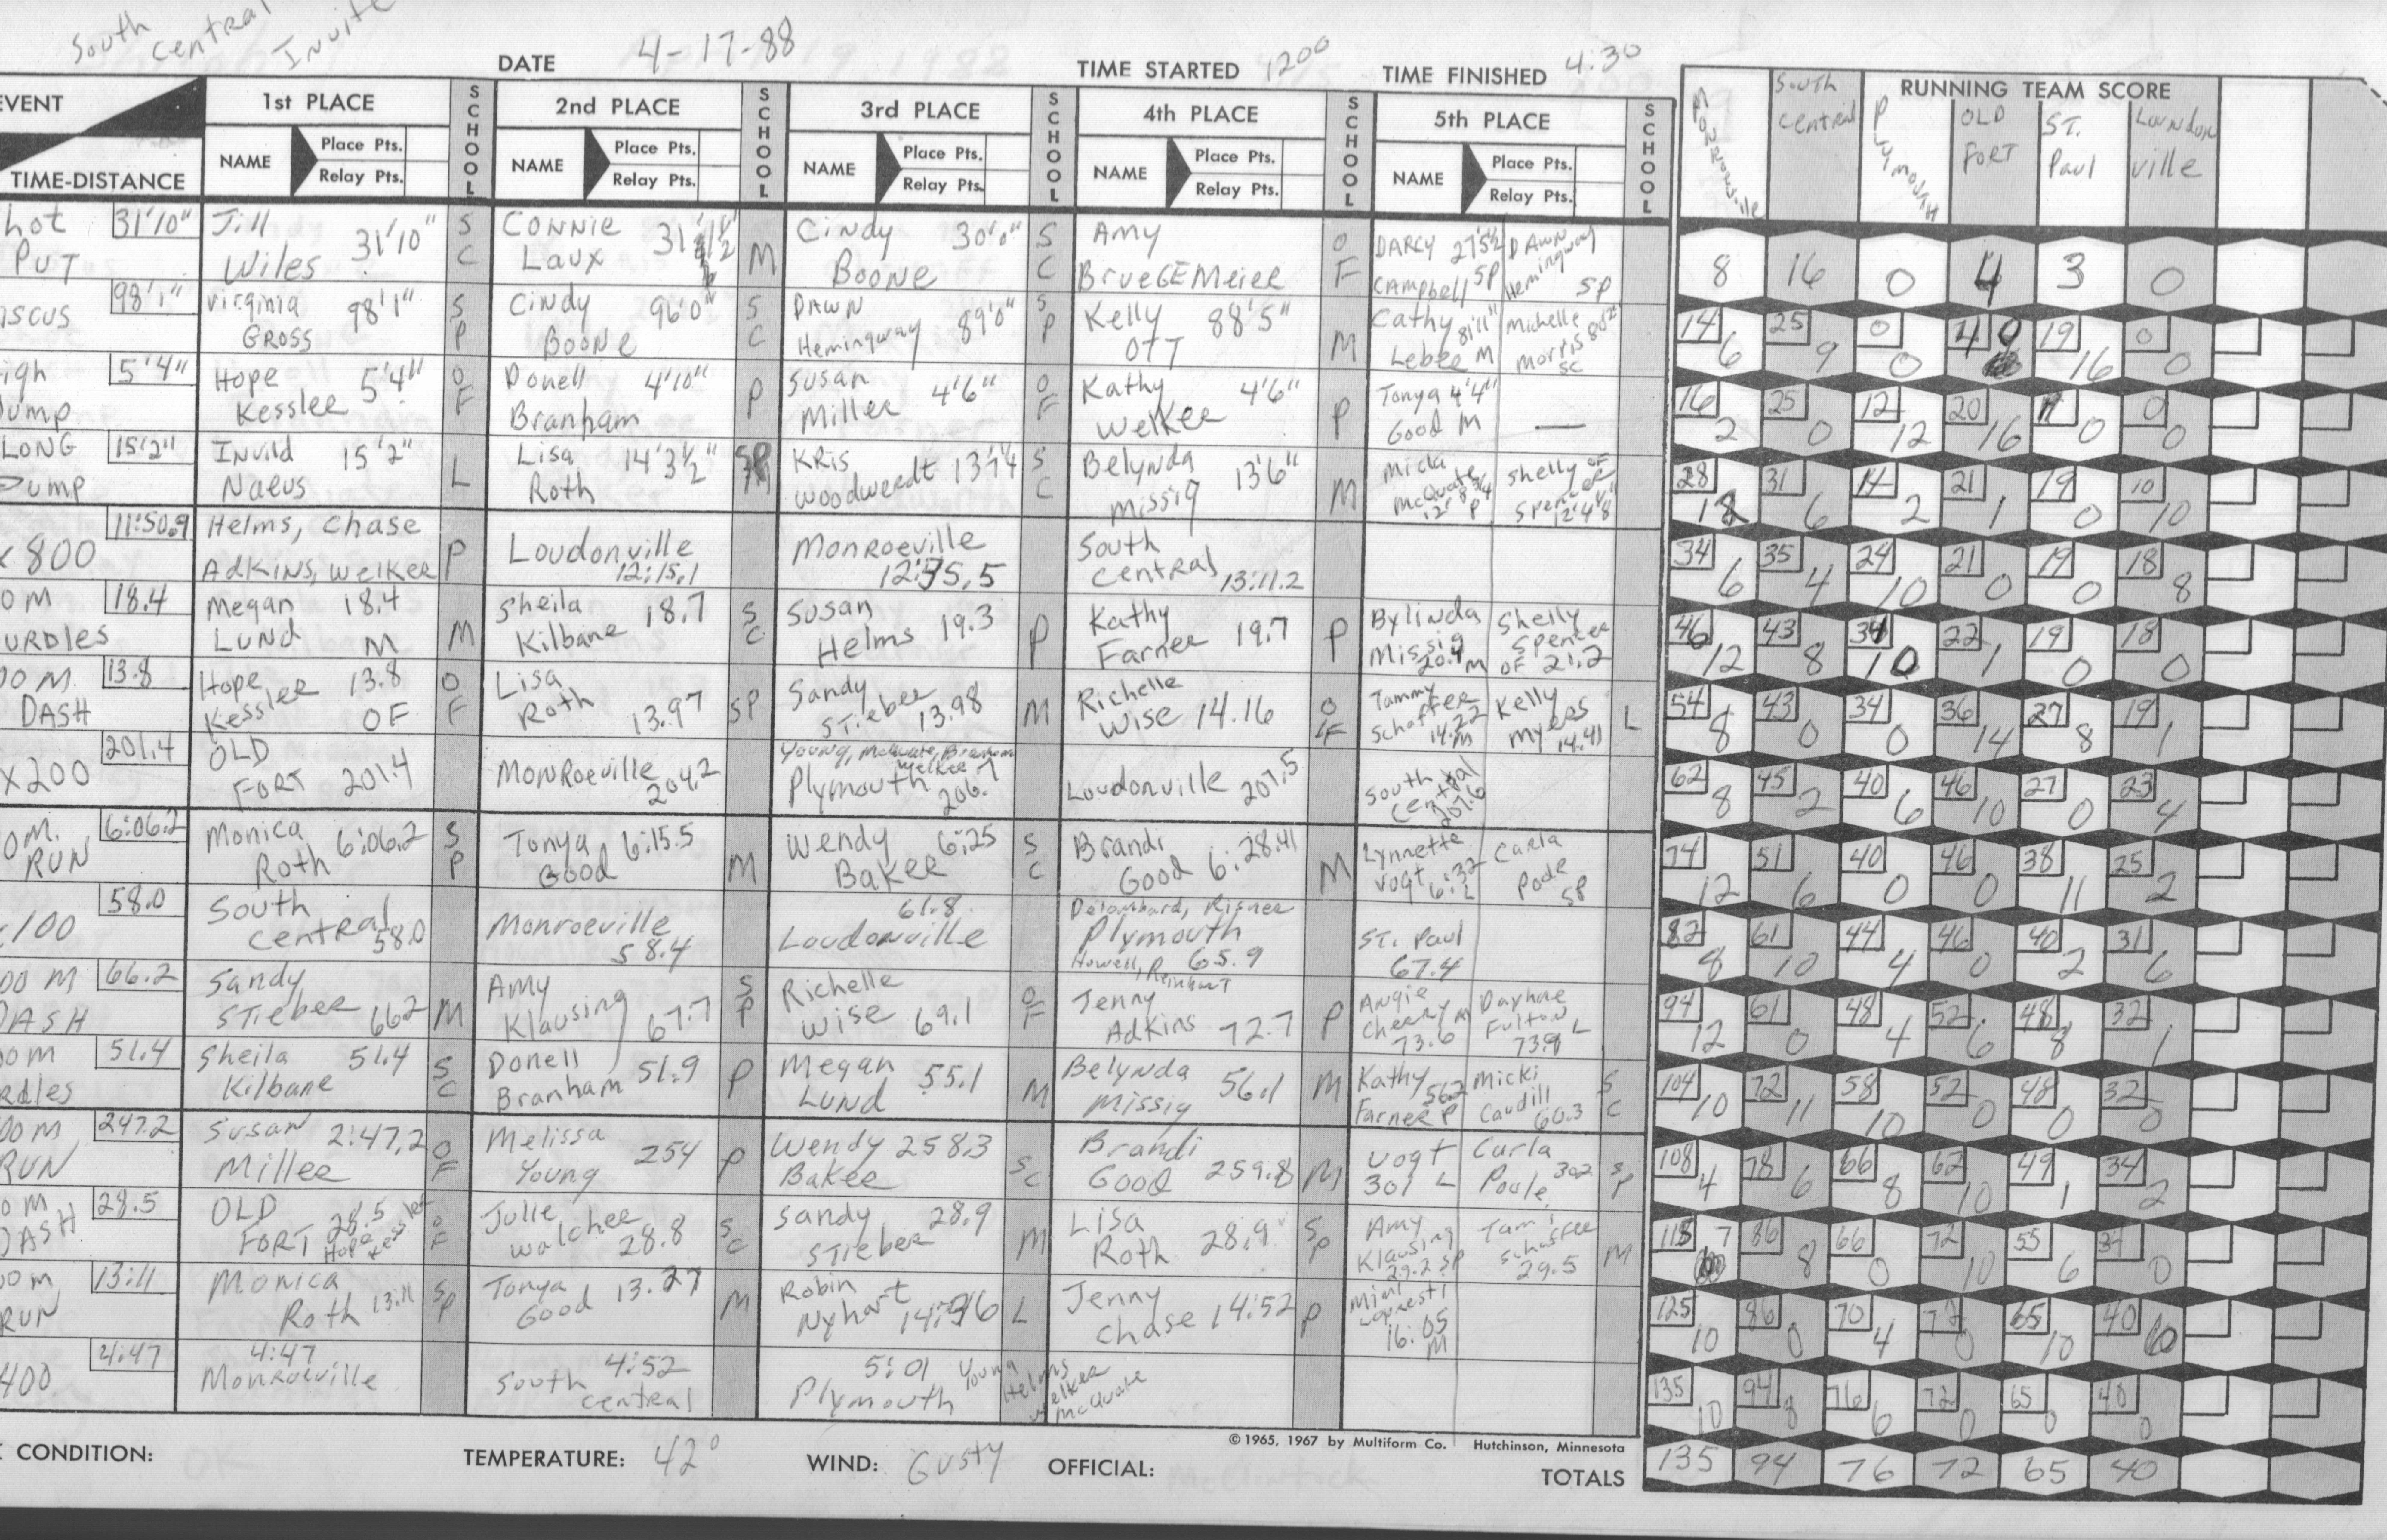 South Central Invite
DATE 4-17-88 TIME STARTED 1200 TIME FINISHED 4:30
EVENT TIME-DISTANCE
1st PLACE NAME Place Pts. Relay Pts. SCHOOL
2nd PLACE NAME Place Pts. Relay Pts. SCHOOL
3rd PLACE NAME Place Pts. Relay Pts. SCHOOL
4th PLACE NAME Place Pts. Relay Pts. SCHOOL
5th PLACE NAME Place Pts. Relay Pts. SCHOOL
RUNNING TEAM SCORE
Monroeville South Central Plymouth OLD FORT ST. Paul Loundonville
hot PUT 31'10" Jill Wiles 31'10" SC CONNIE Laux M Cindy BOONE 30'0" SC AMY BrueGEMeier OF DARCY CAMPbell 27'5½ SP DAWN Hemingway SP 8 16 0 4 3 0
iscus 98'1" Virginia GROSS 98'1" SP Cindy BOONE 96'0" SC DAWN Hemingway 89'0" SP Kelly OTT 88'5" M Cathy Leber 81'11" M Michelle Morris SC 14 6 25 9 0 0 4 0 19 16 0 0
igh Jump 5'4" Hope Kessler 5'4" OF Donell Branham 4'10" P Susan Miller 4'6" OF Kathy Welker 4'6" P Tonya Good 4'4" M — 16 2 25 0 12 12 20 16 0 0 0
LONG Jump 15'2" Invild Naeus 15'2" L Lisa Roth 14'3½" SP KRis Woodwerdt SC Belynda Missig 13'6" M Micla McQuate P Shelly Spencer OF 28 12 31 6 14 2 21 1 19 0 10 10
x 800 11:50.9 Helms, Chase Adkins, Welker P Loudonville 12:15.1 Monroeville South Central 13:11.2 34 6 35 4 24 10 21 0 19 0 18 8
0M URDLES 18.4 Megan LUND 18.4 M M Sheila Kilbane 18.7 SC Susan Helms 19.3 P Kathy Farner 19.7 P Bylinda Missig 20.4 M Shelly Spencer OF 21.2 46 12 43 8 34 10 22 1 19 0 18 0
00 M. DASH 13.8 Hope Kessler 13.8 OF OF Lisa Roth 13.97 SP Sandy STieber 13.98 M Richelle Wise 14.16 OF Tammy Schaffer 14.22 M Kelly Myers 14.41 L 54 8 43 0 34 0 36 14 27 8 19 1
x200 201.4 OLD FORT 201.4 MONRoeville 204.2 Young, McQuate, Branham Welker Plymouth 206.7 Loudonville 207.5 South Central 207.6 62 8 45 2 40 6 46 10 27 0 23 4
0M. RUN 6:06.2 Monica Roth 6:06.2 SP Tonya Good 6:15.5 M Wendy Baker 6:25 SC Brandi Good 6:28.41 M Lynnette Vogt 6:32 L Carla Pode SP 74 12 51 6 40 0 46 0 38 11 25 2
x100 58.0 South Central 58.0 Monroeville 58.4 61.8 Loudonville Delombard, Risner Plymouth Howell, Reinhart 65.9 ST. Paul 67.4 82 8 61 10 44 4 46 0 40 2 31 6
00 M DASH 66.2 Sandy STieber 66.2 M AMY Klausing 67.7 SP Richelle Wise 69.1 OF Jenny Adkins 72.7 P Angie Cheery M 73.6 Daphne Fulton L 94 12 61 0 48 4 52 6 48 8 32 1
00M rdles 51.4 Sheila Kilbane 51.4 SC Donell Branham 51.9 P Megan LUND 55.1 M Belynda Missig 56.1 M Kathy Farner 56.2 P Micki Caudill 60.3 SC 104 10 72 11 58 10 52 0 48 0 32 0
00M RUN 247.2 Susan Miller 2:47.2 OF Melissa Young 254 P Wendy Baker 258.3 SC Brandi Good 259.8 M Vogt 301 L Carla Poole 302 SP 108 4 78 6 66 8 62 10 49 1 34 2
0M DASH 28.5 OLD FORT 28.5 Hope Kessler OF Julie Walcher 28.8 SC Sandy STieber 28.9 M Lisa Roth 28.9 SP Amy Klausing 29.2 SP Tami Schaffer 29.5 M 115 7 86 8 66 0 72 10 55 6 34 0
00m RUN 13:11 Monica Roth 13:11 SP Tonya Good 13.27 M Robin Nyhart L Jenny Chase 14:52 P Mimi Lopresti 16:05 M 125 10 86 0 70 4 72 0 65 10 40 6
400 4:47 4:47 Monroeville 4:52 South Central 5:01 Plymouth Young Helms Welker McQuate 135 10 94 8 76 6 72 0 65 0 40 0
CONDITION: TEMPERATURE: 42° WIND: Gusty OFFICIAL: ©1965, 1967 by Multiform Co. Hutchinson, Minnesota
TOTALS 135 94 76 72 65 40